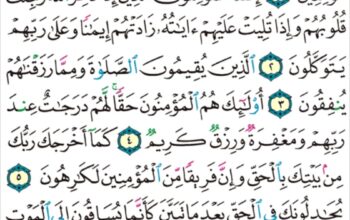 قُلُوبُهُمْ وَإِذَا تُلِيَتْ عَلَيْهِمْ ءَايَٰتُهُۥ زَادَتْهُمْ إِيمَٰنًا وَعَلَىٰ رَبِّهِمْ
يَتَوَكَّلُونَ ٢ ٱلَّذِينَ يُقِيمُونَ ٱلصَّلَوٰةَ وَمِمَّا رَزَقْنَٰهُمْ
يُنفِقُونَ ٣ أُو۟لَٰٓئِكَ هُمُ ٱلْمُؤْمِنُونَ حَقًّا ۚ لَّهُمْ دَرَجَٰتٌ عِندَ
رَبِّهِمْ وَمَغْفِرَةٌ وَرِزْقٌ كَرِيمٌ ٤ كَمَآ أَخْرَجَكَ رَبُّكَ
مِنۢ بَيْتِكَ بِٱلْحَقِّ وَإِنَّ فَرِيقًا مِّنَ ٱلْمُؤْمِنِينَ لَكَٰرِهُونَ ٥
يُجَٰدِلُونَكَ فِى ٱلْحَقِّ بَعْدَ مَا تَبَيَّنَ كَأَنَّمَا يُسَاقُونَ إِلَى ٱلْمَوْتِ